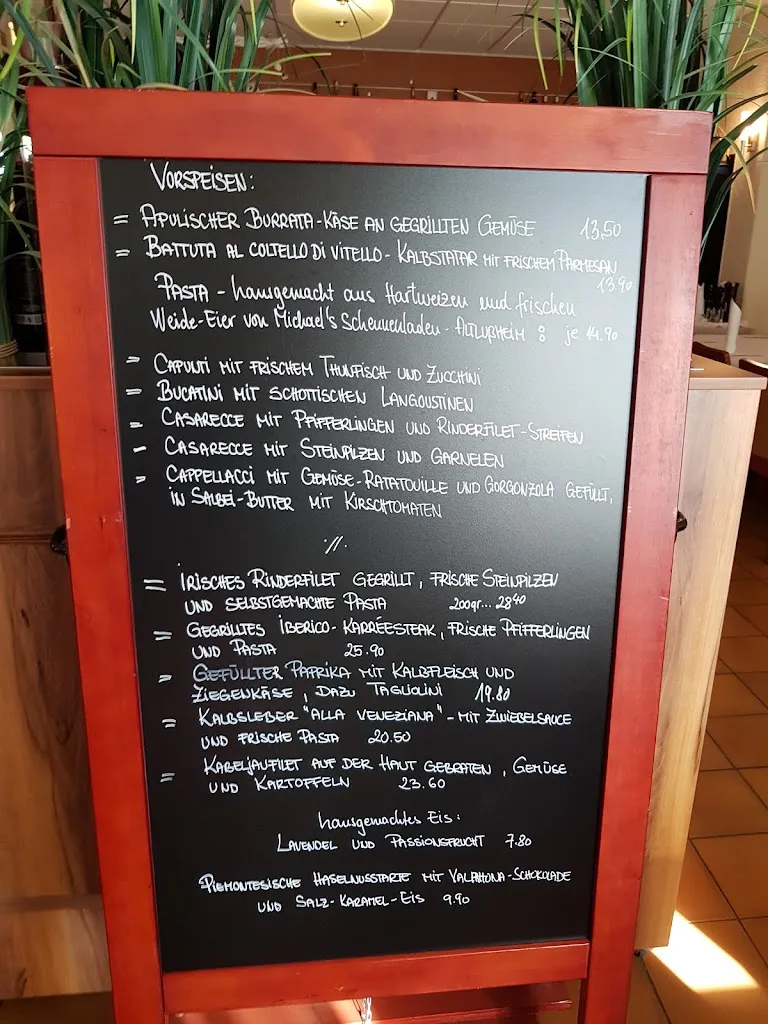 VORSPEISEN:
= APULISCHER BURRATA-KÄSE AN GEGRILLTEN GEMÜSE 13,50
= BATTUTA AL COLTELLO DI VITELLO - KALBSTATAR MIT FRISCHEM PARMESAN
13.90
PASTA - hausgemacht aus Hartweizen und frischen
Weide-Eier von Michael's Scheunenladen - ALTLUßHEIM : je 14.90
= CAPUNTI MIT FRISCHEM THUNFISCH UND ZUCCHINI
= BUCATINI MIT SCHOTTISCHEN LANGOUSTINEN
= CASARECCE MIT PFIFFERLINGEN UND RINDERFILET-STREIFEN
- CASARECCE MIT STEINPILZEN UND GARNELEN
= CAPPELLACCI MIT GEMÜSE-RATATOUILLE UND GORGONZOLA GEFÜLLT,
IN SALBEI-BUTTER MIT KIRSCHTOMATEN
·//.
= IRISCHES RINDERFILET GEGRILLT, FRISCHE STEINPILZEN
UND SELBSTGEMACHTE PASTA 200gr... 28.40
= GEGRILLTES IBERICO-KARRÉESTEAK, FRISCHE PFIFFERLINGEN
UND PASTA 25.90
= GEFÜLLTER PAPRIKA MIT KALBFLEISCH UND
ZIEGENKÄSE, DAZU TAGLIOLINI 19.80
= KALBSLEBER "ALLA VENEZIANA" - MIT ZWIEBELSAUCE
UND FRISCHE PASTA 20.50
= KABELJAUFILET AUF DER HAUT GEBRATEN, GEMÜSE
UND KARTOFFELN 23.60
hausgemachtes Eis:
LAVENDEL UND PASSIONSFRUCHT 7.80
PIEMONTESISCHE HASELNUSSTARTE MIT VALRHONA-SCHOKOLADE
UND SALZ-KARAMEL-EIS 9.90